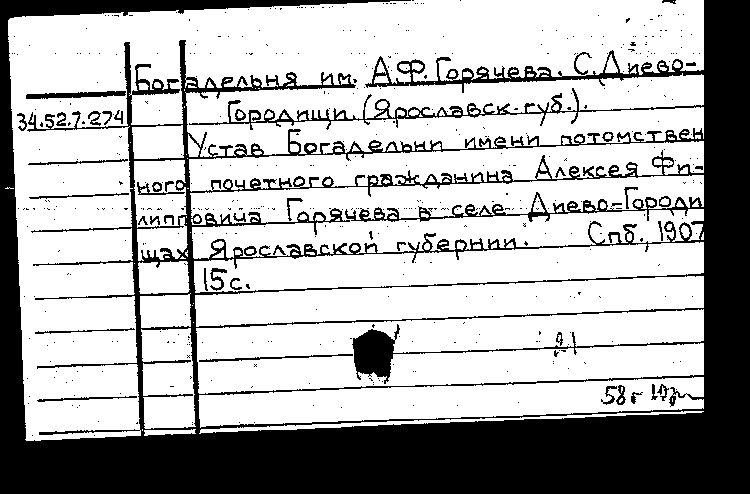 Богадельня им. А.Ф. Горячева. С. Диево-
34.52.7.274 Городищи (Ярославск. губ.).
Устав Богадельни имени потомствен
ного почетного гражданина Алексея Фи-
липповича Горячева в селе Диево-Городи
щах Ярославской губернии. Спб., 1907
15 с.
21
58 г